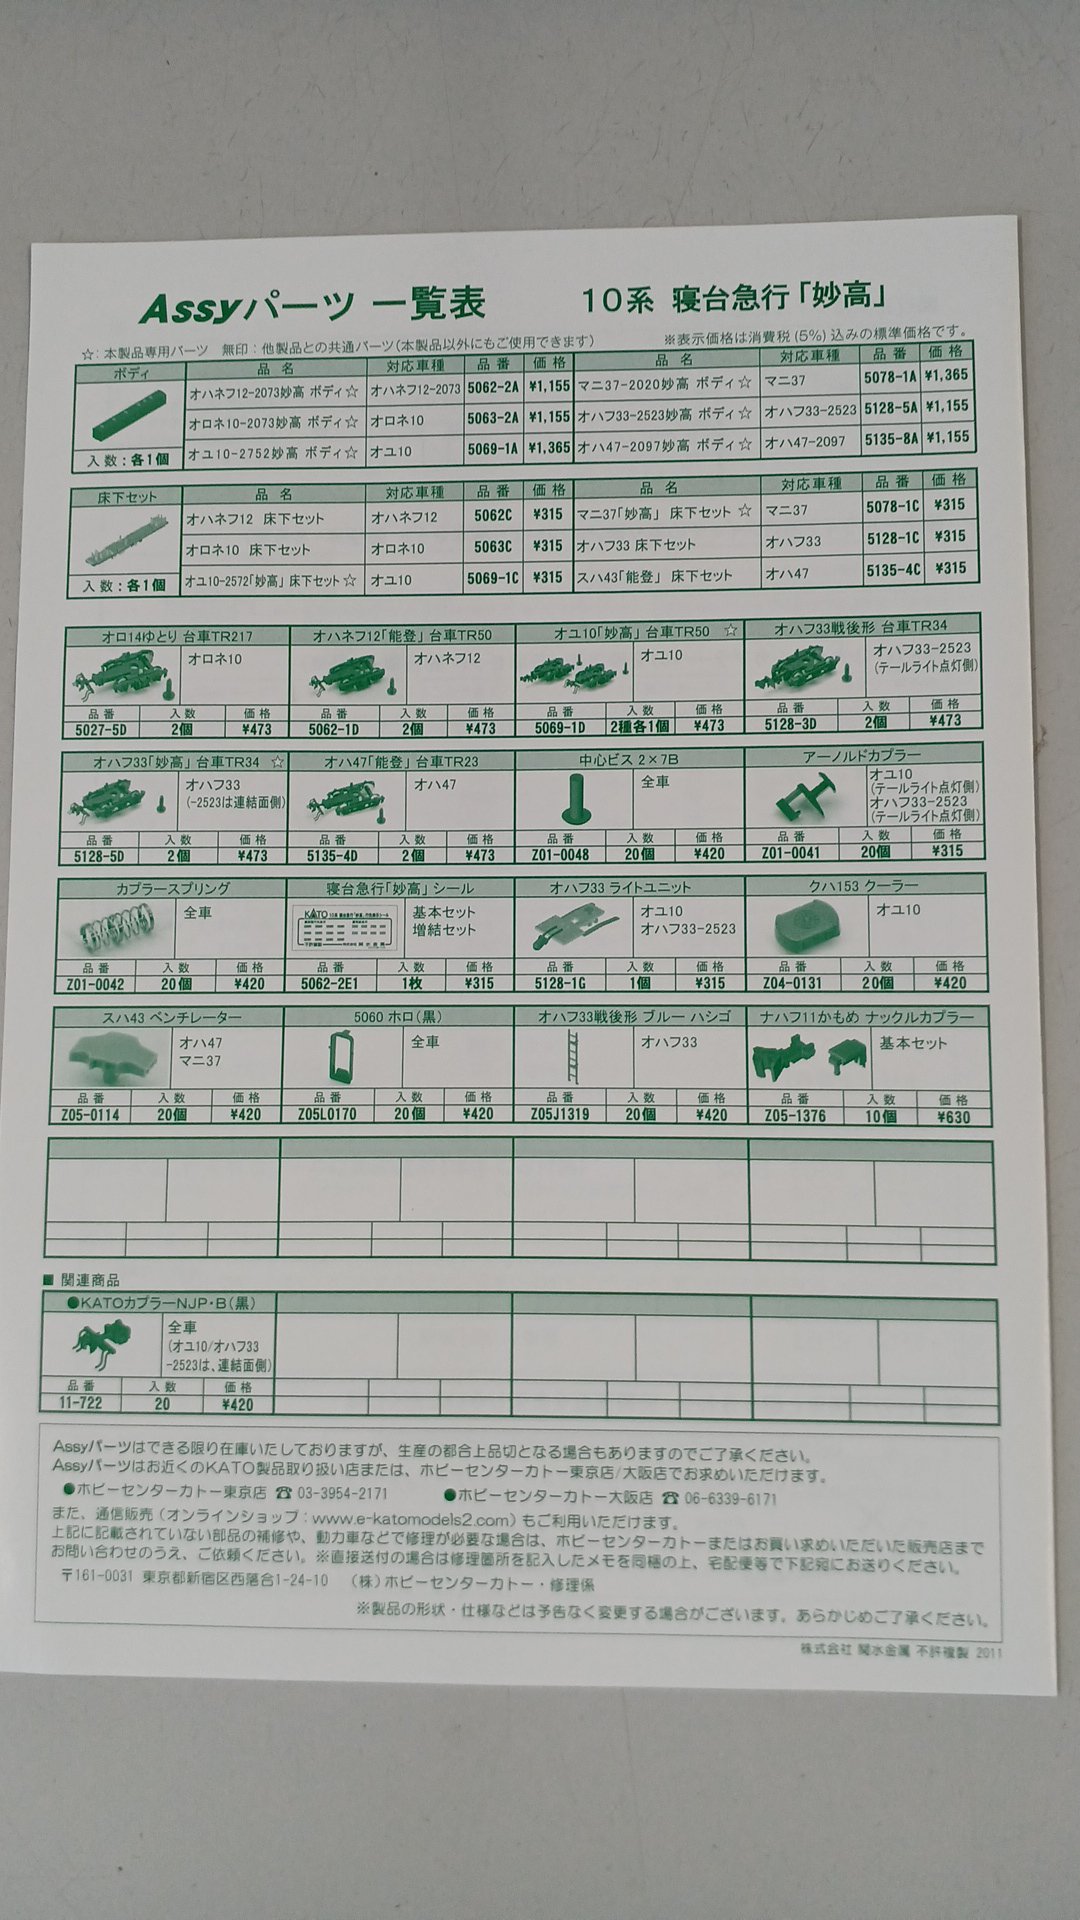 Assyパーツ 一覧表 10系 寝台急行「妙高」
☆：本製品専用パーツ 無印：他製品との共通パーツ(本製品以外にもご使用できます)
※表示価格は消費税(5%)込みの標準価格です。
ボディ 品 名 対応車種 品 番 価 格 品 名 対応車種 品 番 価 格
オハネフ12-2073妙高 ボディ☆ オハネフ12-2073 5062-2A ¥1,155 マニ37-2020妙高 ボディ☆ マニ37 5078-1A ¥1,365
オロネ10-2073妙高 ボディ☆ オロネ10 5063-2A ¥1,155 オハフ33-2523妙高 ボディ☆ オハフ33-2523 5128-5A ¥1,155
入数：各1個 オユ10-2752妙高 ボディ☆ オユ10 5069-1A ¥1,365 オハ47-2097妙高 ボディ☆ オハ47-2097 5135-8A ¥1,155
床下セット 品 名 対応車種 品 番 価 格 品 名 対応車種 品 番 価 格
オハネフ12 床下セット オハネフ12 5062C ¥315 マニ37「妙高」 床下セット ☆ マニ37 5078-1C ¥315
オロネ10 床下セット オロネ10 5063C ¥315 オハフ33 床下セット オハフ33 5128-1C ¥315
入数：各1個 オユ10-2572「妙高」床下セット☆ オユ10 5069-1C ¥315 スハ43「能登」 床下セット オハ47 5135-4C ¥315
オロ14ゆとり 台車TR217 オハネフ12「能登」台車TR50 オユ10「妙高」台車TR50 ☆ オハフ33戦後形 台車TR34
オロネ10 オハネフ12 オユ10 オハフ33-2523
(テールライト点灯側)
品 番 入 数 価 格 品 番 入 数 価 格 品 番 入 数 価 格 品 番 入 数 価 格
5027-5D 2個 ¥473 5062-1D 2個 ¥473 5069-1D 2種各1個 ¥473 5128-3D 2個 ¥473
オハフ33「妙高」台車TR34 ☆ オハ47「能登」台車TR23 中心ビス 2×7B アーノルドカプラー
オハフ33 オハ47 全車 オユ10
(-2523は連結面側) (テールライト点灯側)
オハフ33-2523
(テールライト点灯側)
品 番 入 数 価 格 品 番 入 数 価 格 品 番 入 数 価 格 品 番 入 数 価 格
5128-5D 2個 ¥473 5135-4D 2個 ¥473 Z01-0048 20個 ¥420 Z01-0041 20個 ¥315
カプラースプリング 寝台急行「妙高」シール オハフ33 ライトユニット クハ153 クーラー
全車 基本セット オユ10 オユ10
増結セット オハフ33-2523
KATO
品 番 入 数 価 格 品 番 入 数 価 格 品 番 入 数 価 格 品 番 入 数 価 格
Z01-0042 20個 ¥420 5062-2E1 1枚 ¥315 5128-1G 1個 ¥315 Z04-0131 20個 ¥420
スハ43 ベンチレーター 5060 ホロ(黒) オハフ33戦後形 ブルー ハシゴ ナハフ11かもめ ナックルカプラー
オハ47 全車 オハフ33 基本セット
マニ37
品 番 入 数 価 格 品 番 入 数 価 格 品 番 入 数 価 格 品 番 入 数 価 格
Z05-0114 20個 ¥420 Z05L0170 20個 ¥420 Z05J1319 20個 ¥420 Z05-1376 10個 ¥630
■ 関連商品
●KATOカプラーNJP・B(黒)
全車
(オユ10/オハフ33
-2523は、連結面側)
品 番 入 数 価 格
11-722 20 ¥420
Assyパーツはできる限り在庫いたしておりますが、生産の都合上品切となる場合もありますのでご了承ください。
Assyパーツはお近くのKATO製品取り扱い店または、ホビーセンターカトー東京店/大阪店でお求めいただけます。
●ホビーセンターカトー東京店 ☎ 03-3954-2171 ●ホビーセンターカトー大阪店 ☎ 06-6339-6171
また、通信販売(オンラインショップ：www.e-katomodels2.com)もご利用いただけます。
上記に記載されていない部品の補修や、動力車などで修理が必要な場合は、ホビーセンターカトーまたはお買い求めいただいた販売店まで
お問い合わせのうえ、ご依頼ください。※直接送付の場合は修理箇所を記入したメモを同梱の上、宅配便等で下記宛にお送りください。
〒161-0031 東京都新宿区西落合1-24-10 (株)ホビーセンターカトー・修理係
※製品の形状・仕様などは予告なく変更する場合がございます。あらかじめご了承ください。
株式会社 関水金属 不許複製 2011